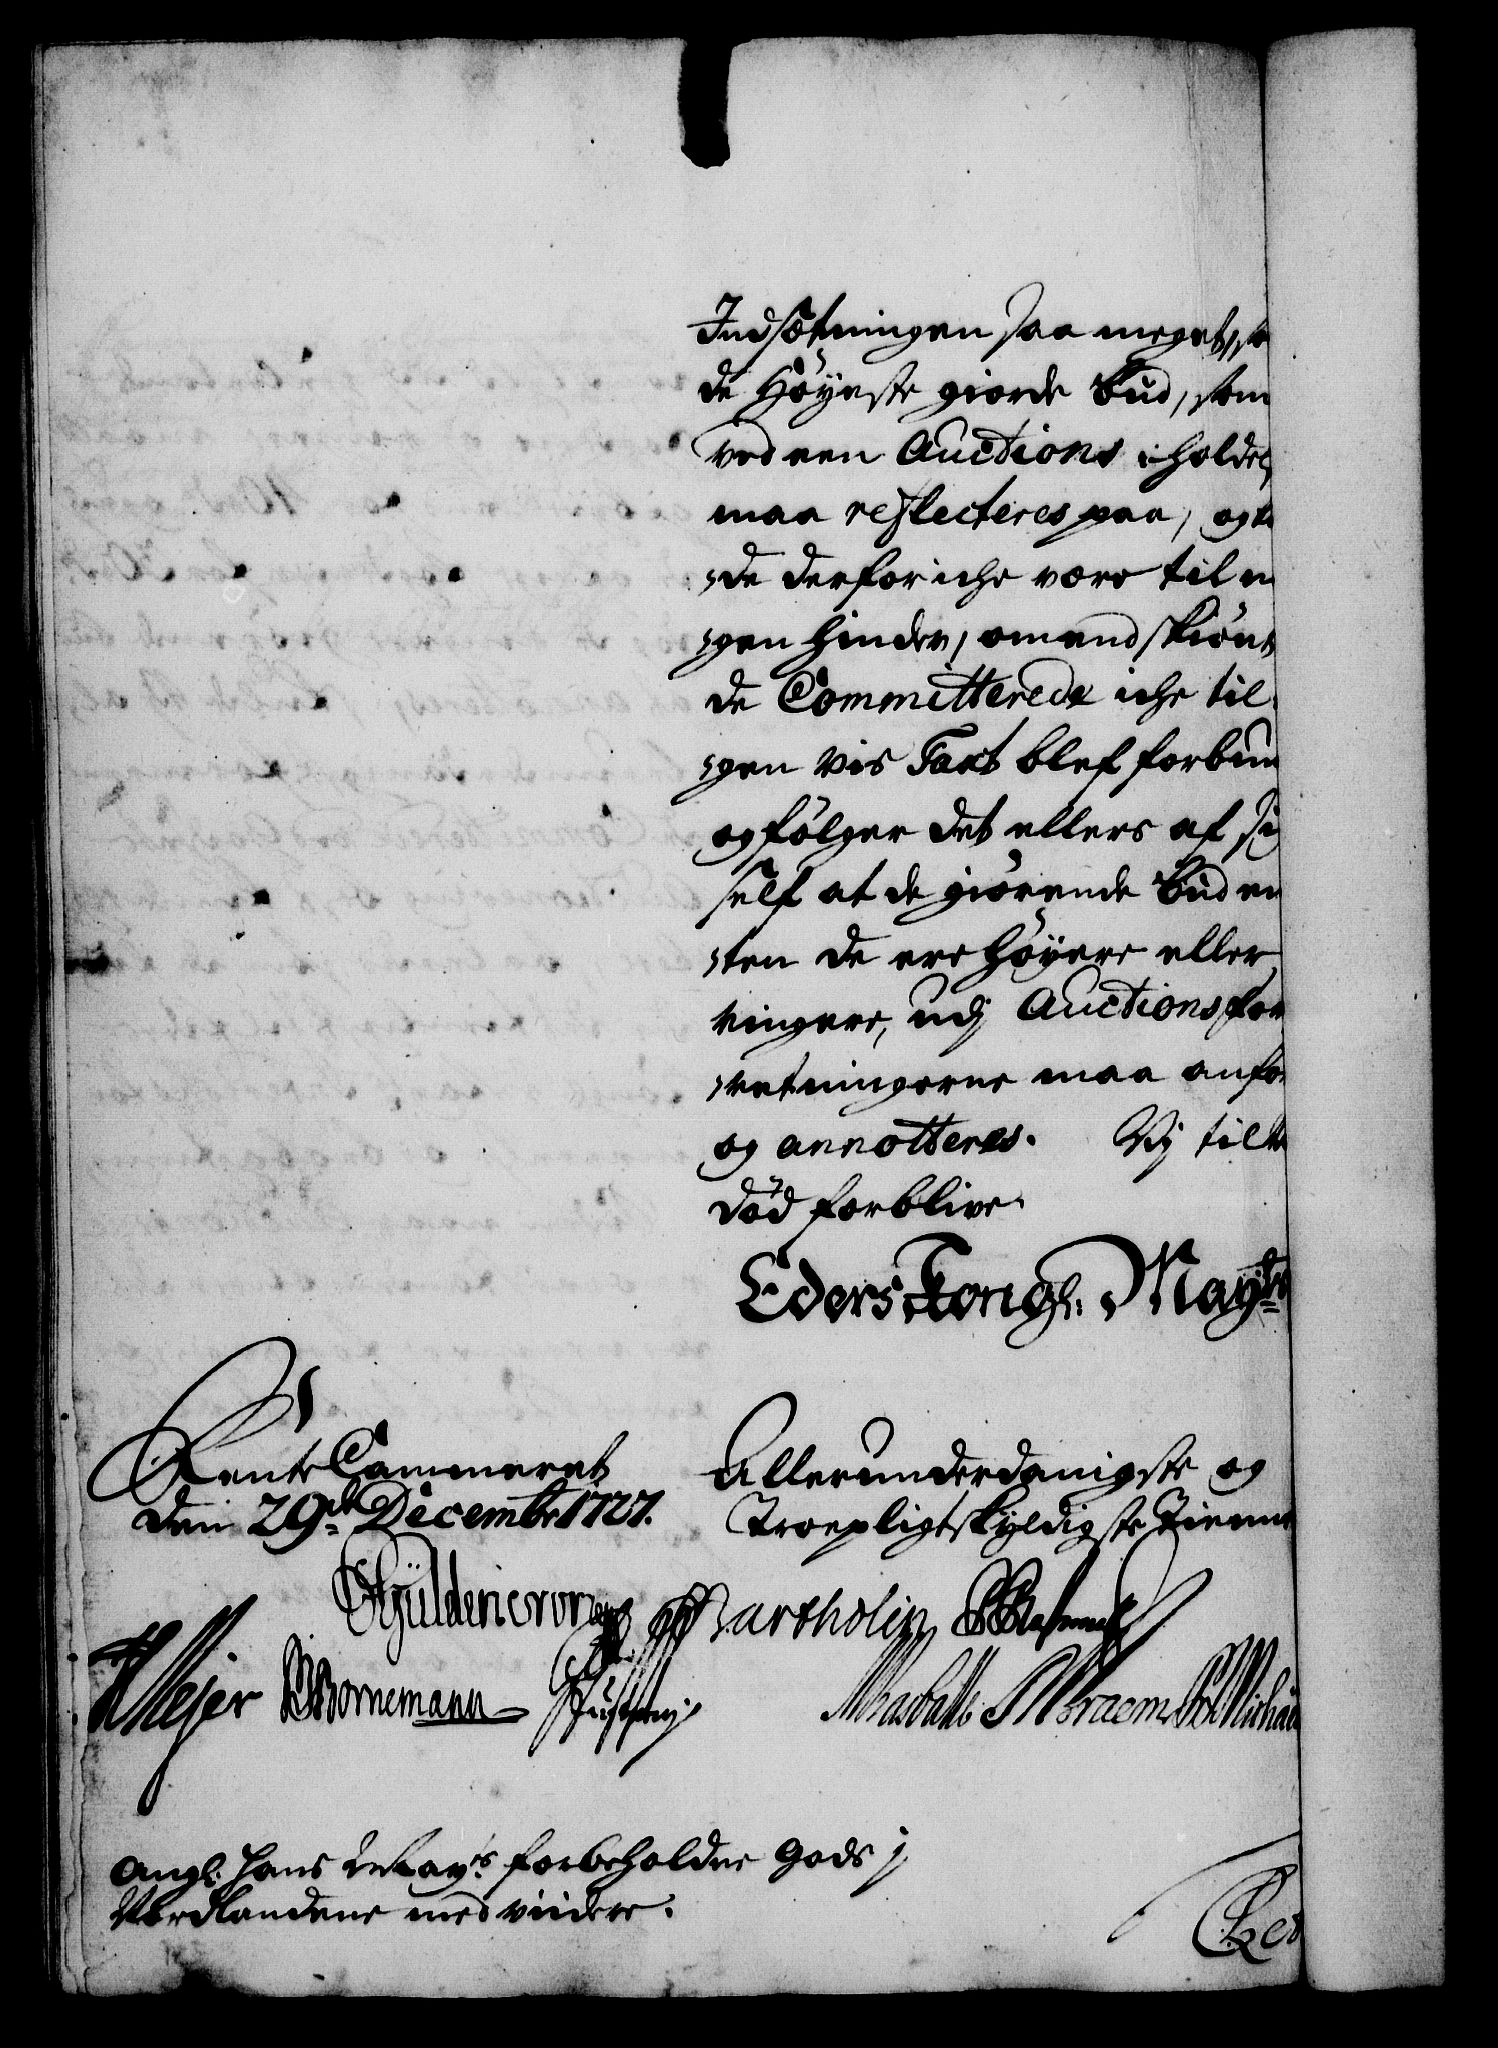 Indsætningen saa meget, so
de Høyeste giorde Bud, som
ved een Auctions iholdel
maa reflecteres paa, og
de derfor iche være til n
gen hinder, omend skiønt
de Committerede iche til
gen vis Taxt blef forbun
og følger det ellers af sig
self at de giørende Bud en
ten de ere høyere eller
ringere, udj Auctions for
retningerne maa anfø
og annotteres. Vij till
død forblive
Eders Kongl: Mayts
Rente Cammeret
den 29de Decembr 1727.
Allerunderdanigste og
Troepligtskyldigste Tienne
Güldencrone
Bartholin
Mejer
Bornemann
Braem
angl: Hans Mayts forbeholdne Gods j
Nordlandene med viidere.